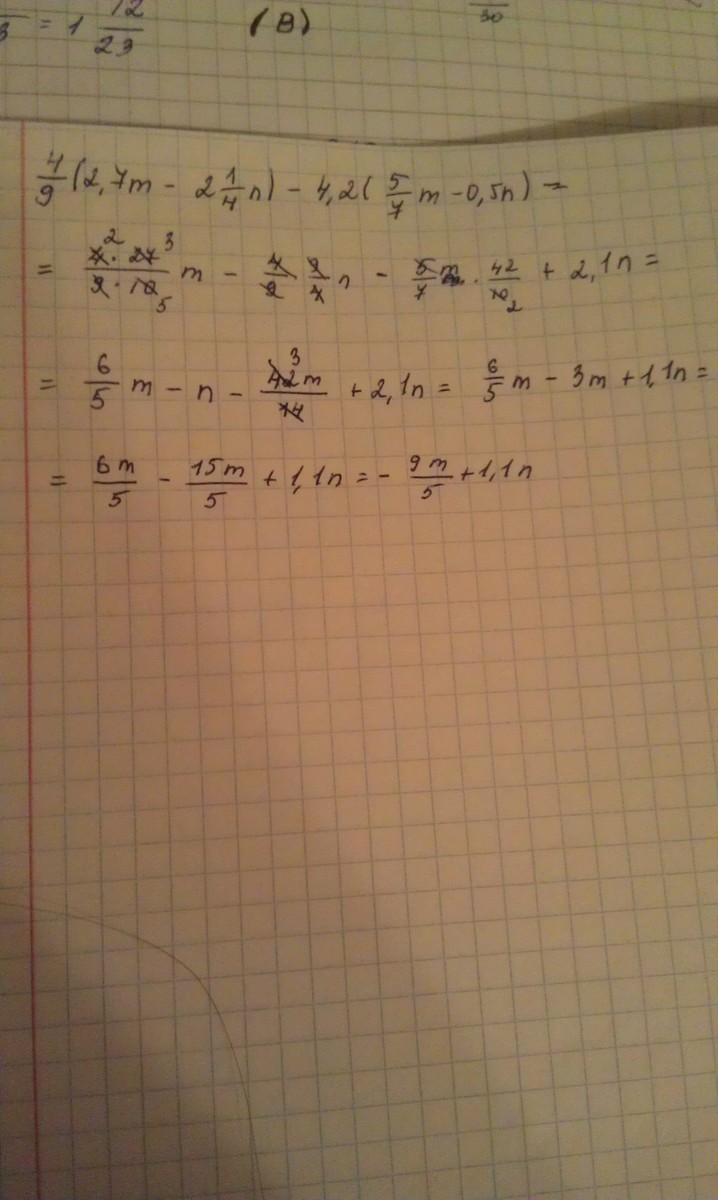 = 1 12/23 (В) 30
4/9 (2,7m - 2 1/4 n) - 4,2 ( 5/7 m - 0,5n) =
= 4² · 27³ / 9 · 10₅ m - 4/9 · 9/4 n - 5/7 · 42/10₂ + 2,1n =
= 6/5 m - n - 42³m/14 + 2,1n = 6/5 m - 3m + 1,1n =
= 6m/5 - 15m/5 + 1,1n = - 9m/5 + 1,1n